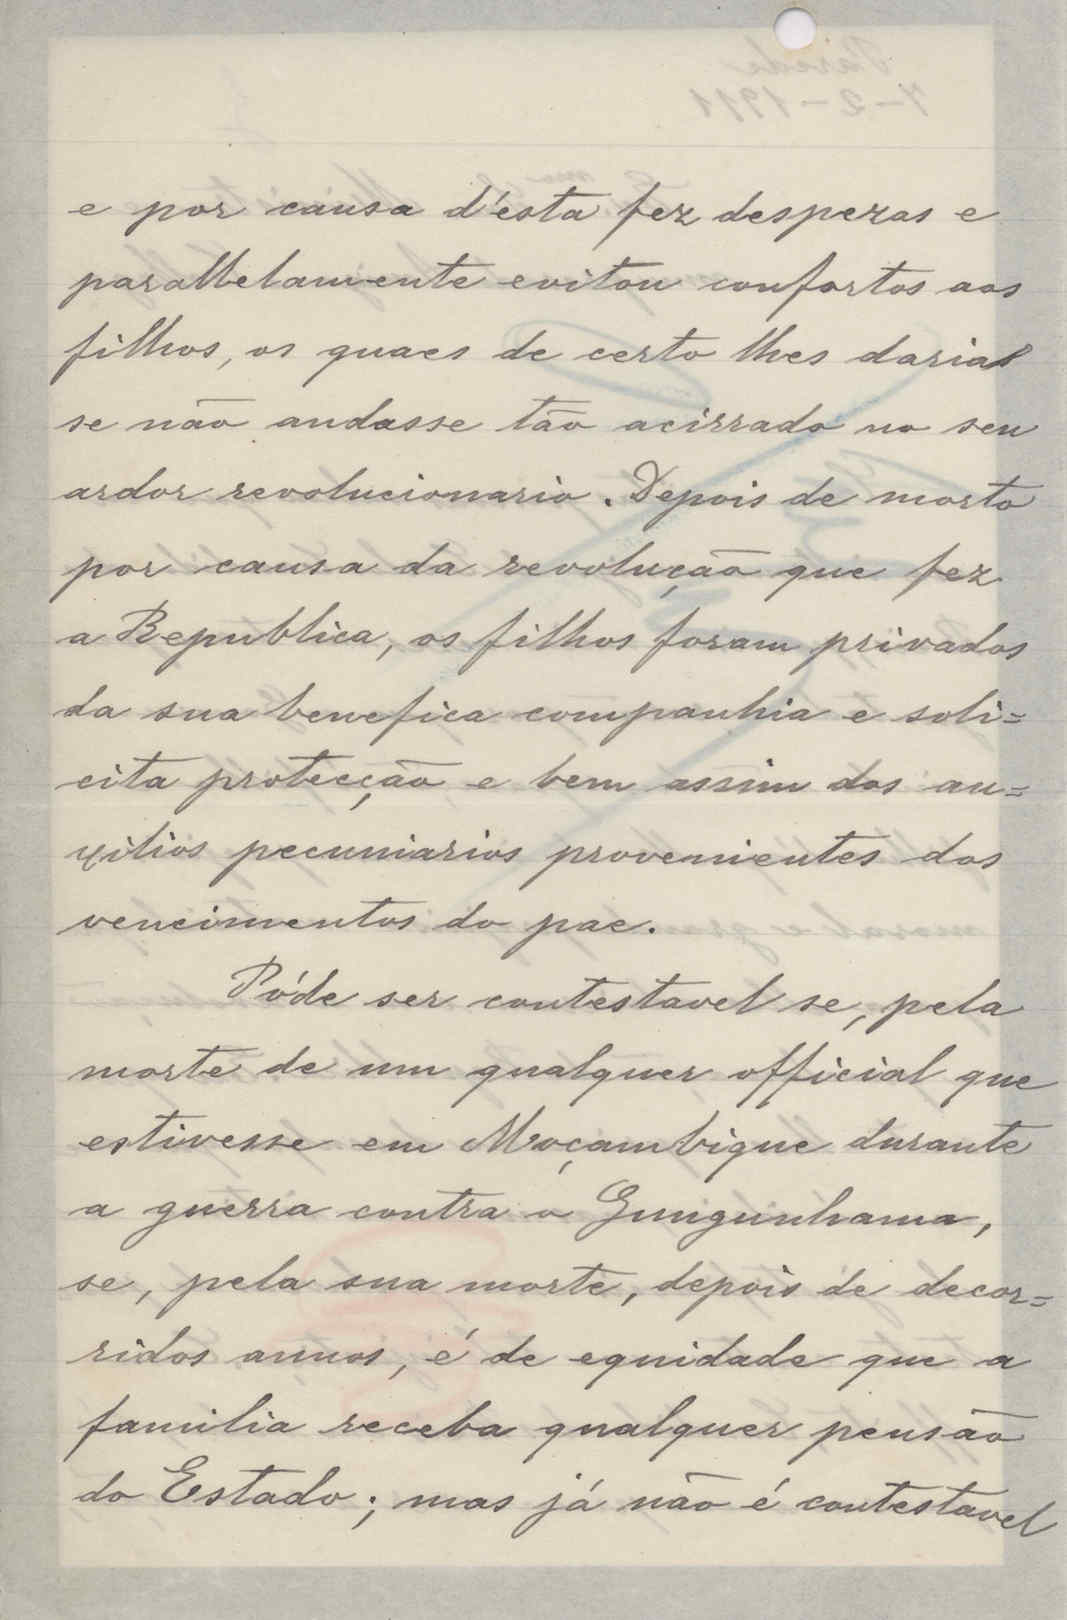 e por causa d'esta fez despezas e
parallelamente evitou confortos aos
filhos, os quaes de certo lhes daria
se não andasse tão acirrado no seu
ardor revolucionario. Depois de morto
por causa da revolução que fez
a Republica, os filhos foram privados
da sua benefica companhia e soli=
cita protecção e bem assim dos au=
xilios pecuniarios provenientes dos
vencimentos do pae.
Póde ser contestavel se, pela
morte de um qualquer official que
estivesse em Moçambique durante
a guerra contra o Gungunhama,
se, pela sua morte, depois de decor=
ridos annos, é de equidade que a
familia receba qualquer pensão
do Estado; mas já não é contestavel